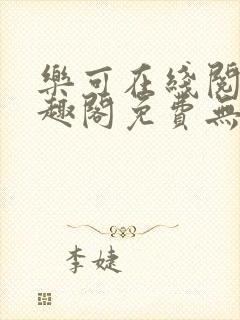 樂可在綫閱
趣閣免費無
李婕